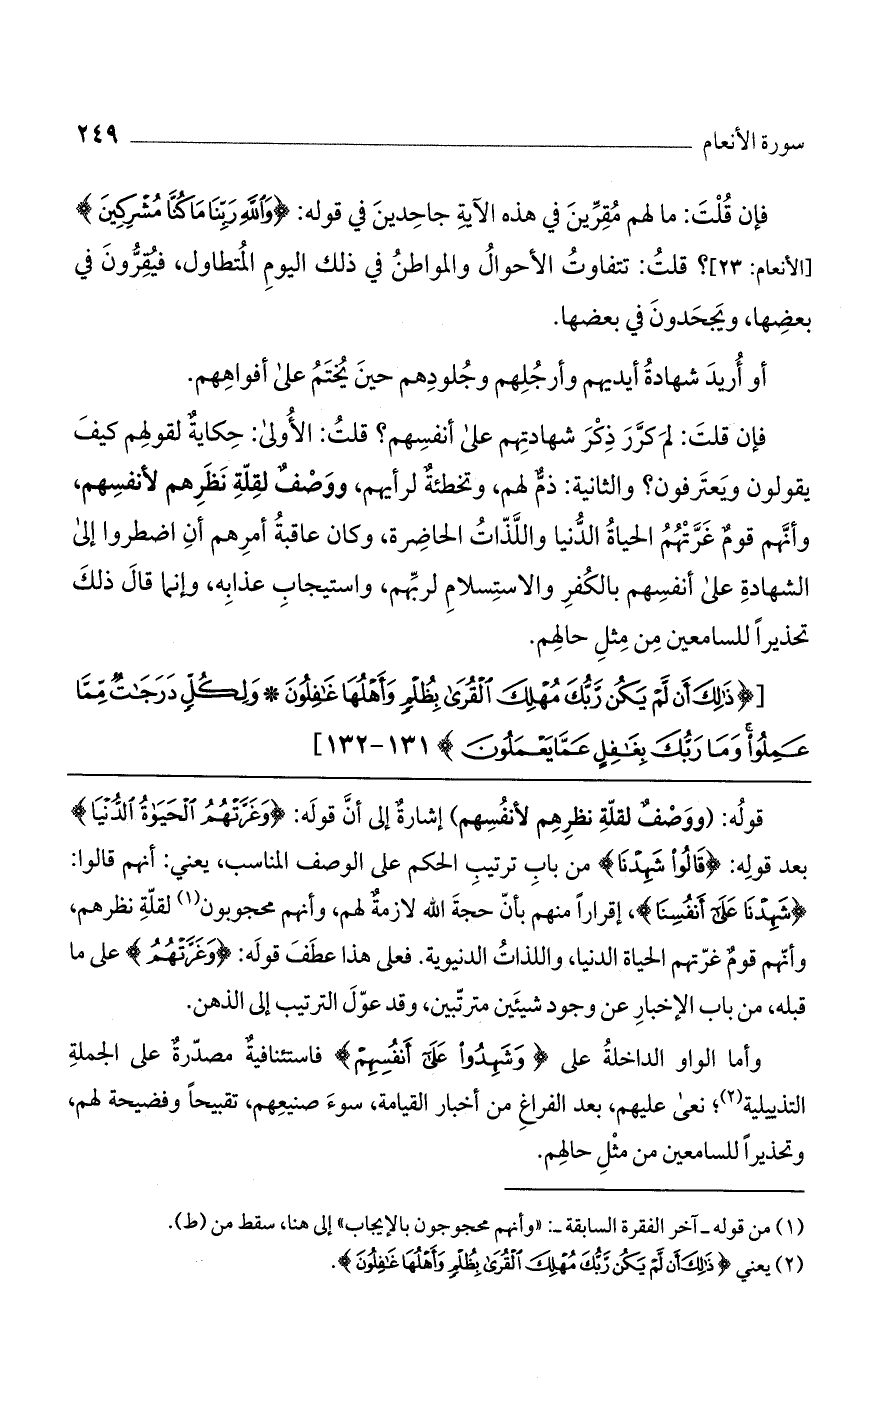 سورة الأنعام ٢٤٩
فإن قُلْتَ: ما لهم مُقِرِّينَ في هذه الآيةِ جاحِدينَ في قوله: ﴿وَٱللَّهِ رَبِّنَا مَا كُنَّا مُشْرِكِينَ﴾
[الأنعام: ٢٣]؟ قلتُ: تتفاوتُ الأحوالُ والمواطنُ في ذلك اليومِ المُتطاول، فيُقِرُّونَ في
بعضِها، ويَجحَدونَ في بعضها.
أو أُريدَ شهادةُ أيديهم وأرجُلِهم وجُلودِهم حينَ يُختَمُ علىٰ أفواهِهم.
فإن قلتَ: لمَ كرَّرَ ذِكْرَ شهادتِهم علىٰ أنفسِهم؟ قلتُ: الأُولىٰ: حِكايةٌ لقولهِم كيفَ
يقولون ويَعتَرفون؟ والثانية: ذمٌّ لهم، وتخطئةٌ لرأيهم، ووَصْفٌ لقِلّةِ نَظَرِهم لأنفسِهم،
وأنَّهم قومٌ غَرَّتْهُمُ الحياةُ الدُّنيا واللَّذّاتُ الحاضِرة، وكان عاقبةُ أمرِهم أنِ اضطروا إلىٰ
الشهادةِ علىٰ أنفسِهم بالكُفرِ والاستِسلامِ لربِّهم، واستيجابِ عذابِه، وإنما قالَ ذلكَ
تحذيراً للسامعين مِن مِثلِ حالهِم.
[﴿ذَٰلِكَ أَن لَّمْ يَكُن رَّبُّكَ مُهْلِكَ ٱلْقُرَىٰ بِظُلْمٍ وَأَهْلُهَا غَٰفِلُونَ * وَلِكُلٍّ دَرَجَٰتٌ مِّمَّا
عَمِلُوا۟ ۚ وَمَا رَبُّكَ بِغَٰفِلٍ عَمَّا يَعْمَلُونَ﴾ ١٣١-١٣٢]
قولُه: (ووَصْفٌ لقلّةِ نظرِهِم لأنفُسِهم) إشارةٌ إلى أنَّ قولَه: ﴿وَغَرَّتْهُمُ ٱلْحَيَوٰةُ ٱلدُّنْيَا﴾
بعد قولِه: ﴿قَالُوا۟ شَهِدْنَا﴾ من بابِ ترتيبِ الحكم على الوصف المناسب، يعني: أنهم قالوا:
﴿شَهِدْنَا عَلَىٰٓ أَنفُسِنَا﴾، إقراراً منهم بأنّ حجةَ الله لازمةٌ لهم، وأنهم محجوبون(١) لقلّةِ نظرهم،
وأنّهم قومٌ غرّتهم الحياة الدنيا، واللذاتُ الدنيوية. فعلى هذا عطَفَ قولَه: ﴿وَغَرَّتْهُمُ﴾ على ما
قبله، من باب الإخبارِ عن وجود شيئَين مترتّبين، وقد عوّلَ الترتيب إلى الذهن.
وأما الواو الداخلةُ على ﴿وَشَهِدُوا۟ عَلَىٰٓ أَنفُسِهِمْ﴾ فاستئنافيةٌ مصدّرةٌ على الجملةِ
التذييلية(٢)؛ نعىٰ عليهم، بعد الفراغِ من أخبار القيامة، سوءَ صنيعِهم، تقبيحاً وفضيحة لهم،
وتحذيراً للسامعين من مثْلِ حالهِم.
(١) من قوله ـ آخر الفقرة السابقة ـ: «وأنهم محجوجون بالإيجاب» إلى هنا، سقط من (ط).
(٢) يعني ﴿ذَٰلِكَ أَن لَّمْ يَكُن رَّبُّكَ مُهْلِكَ ٱلْقُرَىٰ بِظُلْمٍ وَأَهْلُهَا غَٰفِلُونَ﴾.